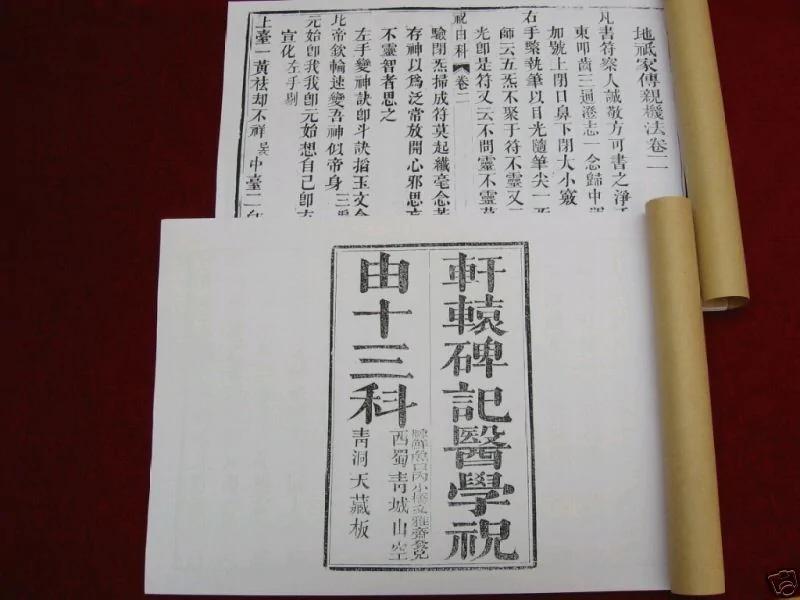 地祇家傳親機法卷二
凡書符察人誠敬方可書之淨
東叩齒三通澄志一念歸中
加號上閉目鼻下閉大小竅
右手緊執筆以目光隨筆尖一
師云五炁不聚于符不靈又
光即是符又云不問靈不靈
祝由科【卷二
驗閉炁掃成符莫起纖毫念
存神以為泛常放開心邪思
不靈智者思之
左手變神訣卽斗訣搯玉文
比帝欽輪速變吾神似帝身三
元始卽我我卽元始想自己卽
宣化左手剔
上臺一黃祛却不祥 中臺二
軒轅碑記醫學祝
由十三科
西蜀青城山空
青洞天藏板